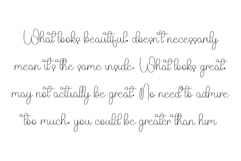 What looks beautiful, doesn't necessarily
mean it's the same inside. What looks great,
may not actually be great. No need to admire
too much, you could be greater than him